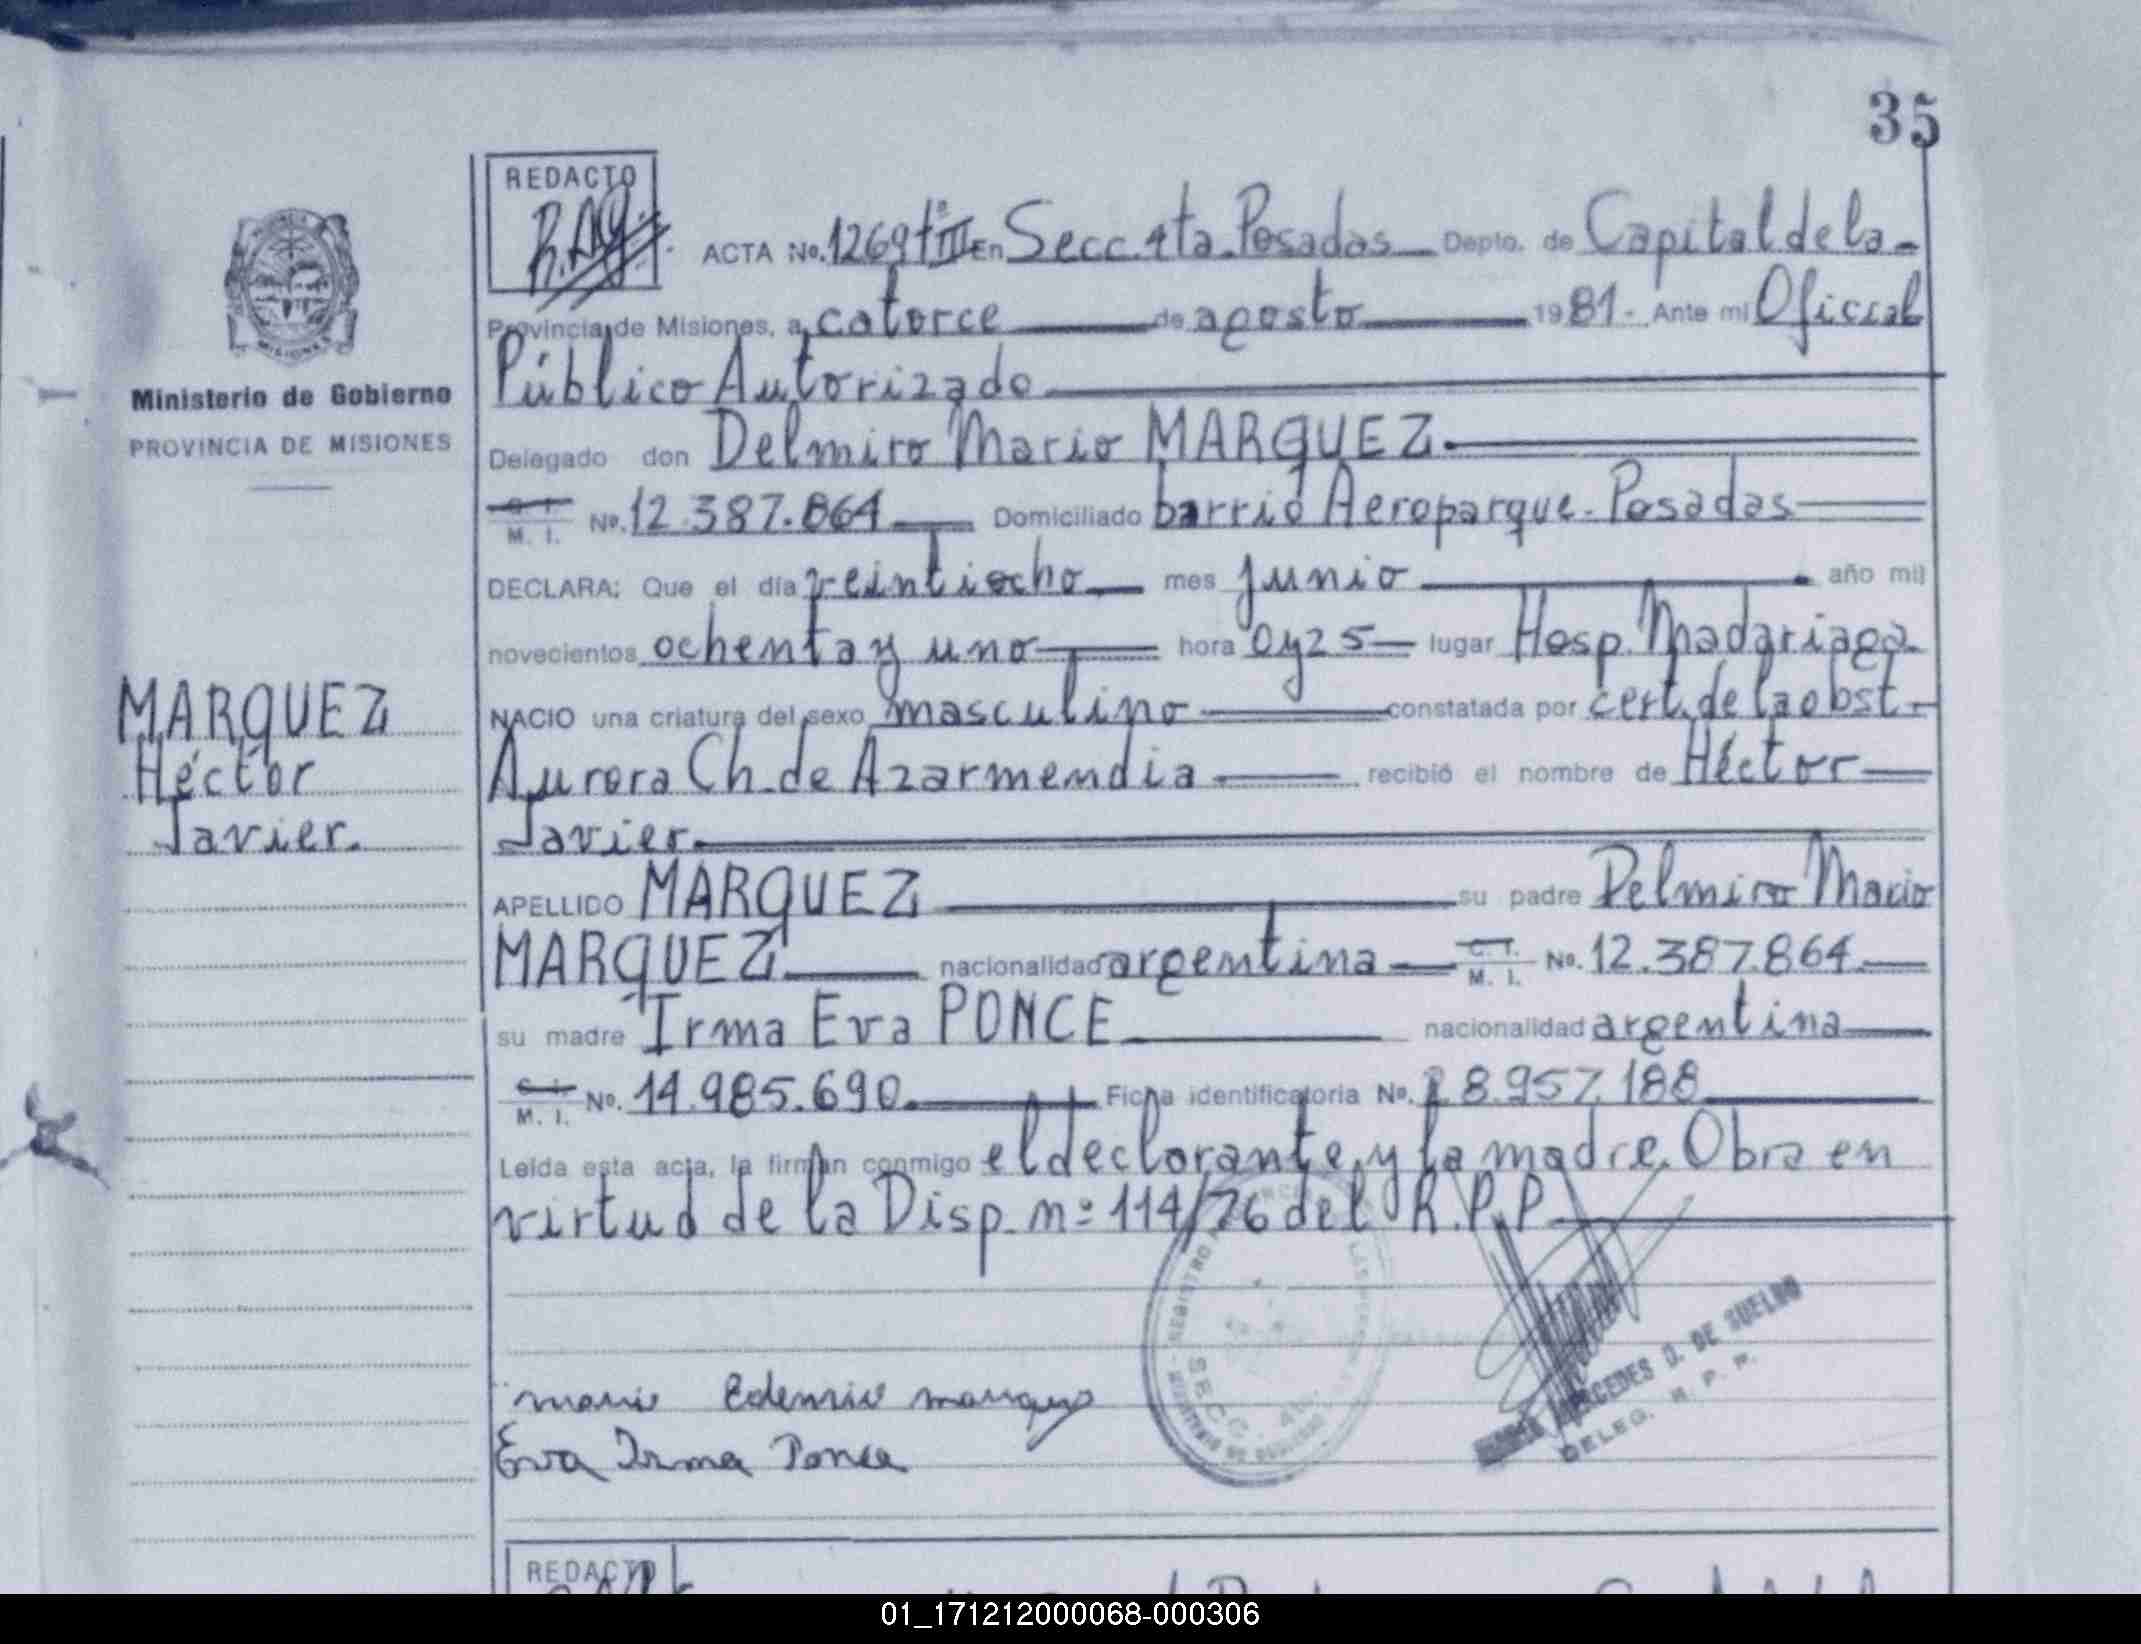 35
REDACTO
ACTA No. 1269 tº III En Secc. 4ta. Posadas Depto. de Capital de la
Provincia de Misiones, a catorce de agosto 1981. Ante mi Oficial
Público Autorizado
Ministerio de Gobierno
PROVINCIA DE MISIONES
Delegado don Delmiro Mario MARQUEZ.
C. I. M. I. No. 12.387.864 Domiciliado barrio Aeroparque. Posadas
DECLARA: Que el día veintiocho mes junio año mil
novecientos ochenta y uno hora 0 y 25 lugar Hosp. Madariaga.
NACIO una criatura del sexo masculino constatada por cert. de la obst.
Aurora Ch. de Azarmendia recibió el nombre de Héctor
Javier.
MARQUEZ
Héctor
Javier.
APELLIDO MARQUEZ su padre Delmiro Mario
MARQUEZ nacionalidad argentina C. I. M. I. No. 12.387.864
su madre Irma Eva PONCE nacionalidad argentina
C. I. M. I. No. 14.985.690. Ficha identificatoria No. 28.957.188
Leída esta acta, la firman conmigo el declarante y la madre. Obra en
virtud de la Disp. nº 114/76 del R.P.P.
SECC. 4ta.
MERCEDES D. DE SUELDO
DELEG. R. P. P.
Eva Irma Ponce
REDACTO
01_171212000068-000306